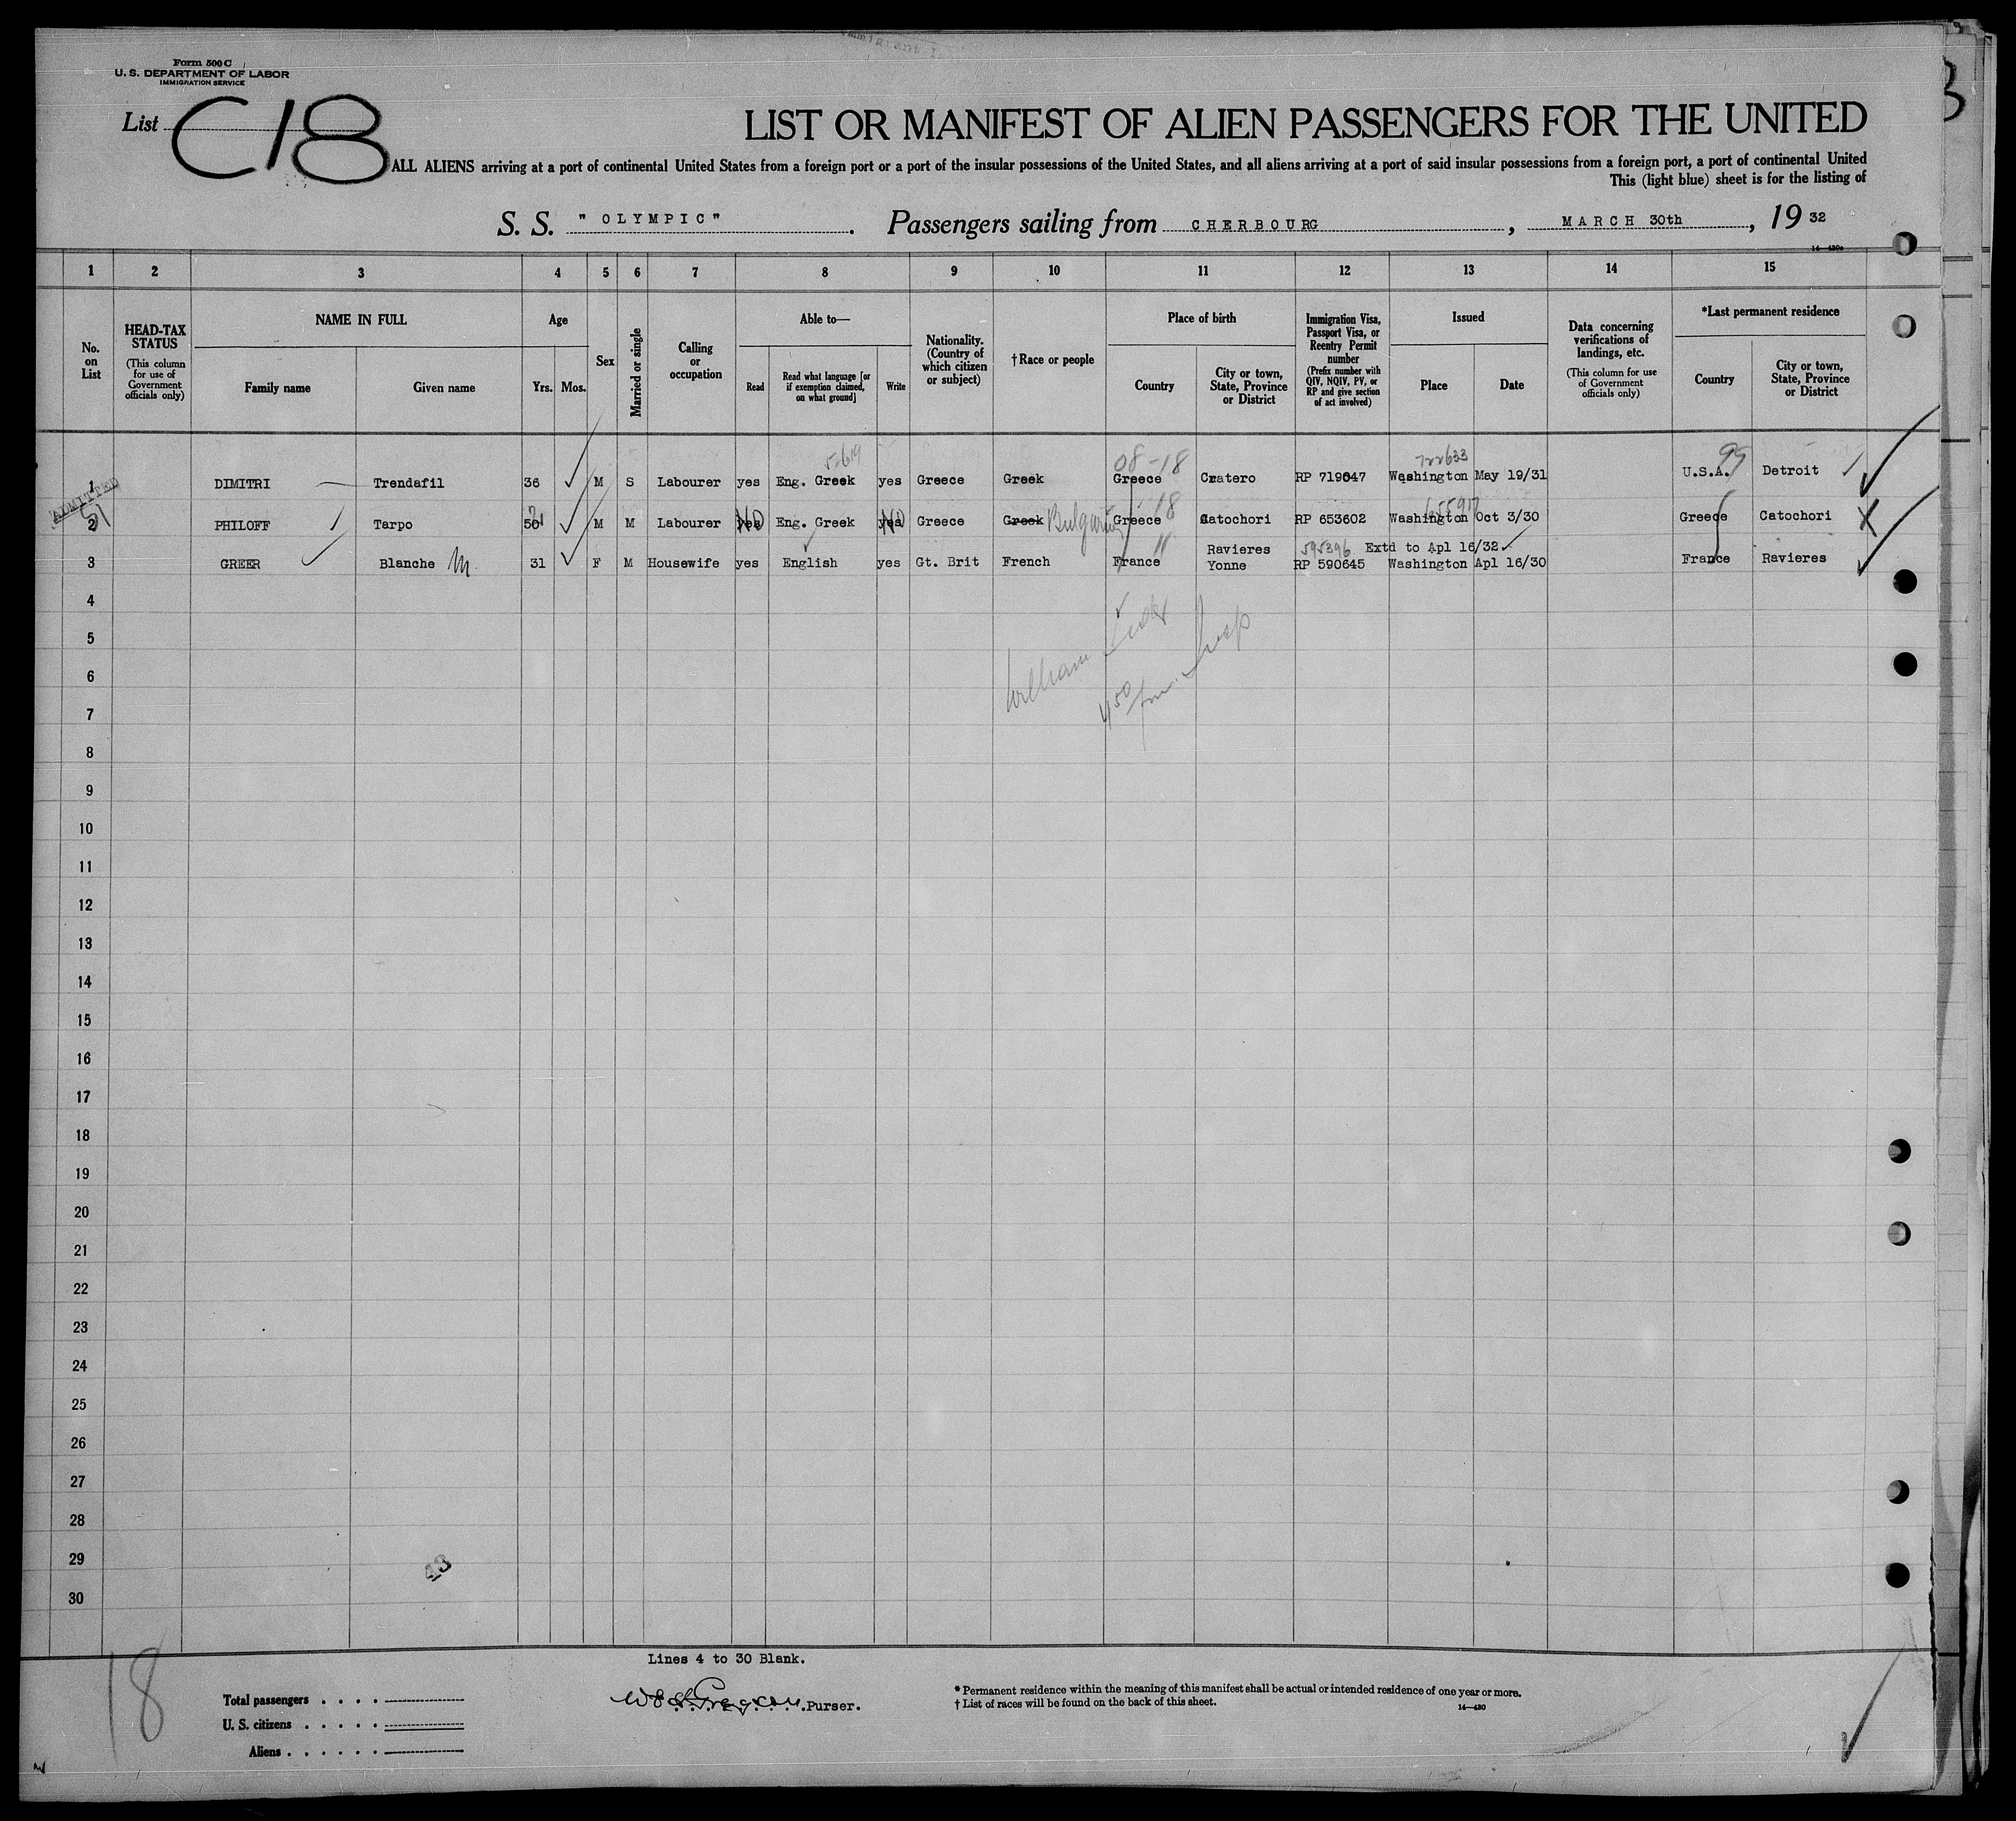 Form 500 C
U. S. DEPARTMENT OF LABOR
IMMIGRATION SERVICE
List C18
LIST OR MANIFEST OF ALIEN PASSENGERS FOR THE UNITED
ALL ALIENS arriving at a port of continental United States from a foreign port or a port of the insular possessions of the United States, and all aliens arriving at a port of said insular possessions from a foreign port, a port of continental United
This (light blue) sheet is for the listing of
S. S. "OLYMPIC". Passengers sailing from CHERBOURG, MARCH 30th, 19 32
14—430a
1 2 3 4 5 6 7 8 9 10 11 12 13 14 15
No. on List
HEAD-TAX STATUS (This column for use of Government officials only)
NAME IN FULL
Family name
Given name
Age
Yrs. Mos.
Sex
Married or single
Calling or occupation
Able to—
Read
Read what language [or if exemption claimed, on what ground]
Write
Nationality. (Country of which citizen or subject)
†Race or people
Place of birth
Country
City or town, State, Province or District
Immigration Visa, Passport Visa, or Reentry Permit number (Prefix number with QIV, NQIV, PV, or RP and give section of act involved)
Issued
Place
Date
Data concerning verifications of landings, etc. (This column for use of Government officials only)
*Last permanent residence
Country
City or town, State, Province or District
08-18 722633 99
1 DIMITRI Trendafil 36 M S Labourer yes Eng. Greek yes Greece Greek Greece Cratero RP 719647 Washington May 19/31 U.S.A. Detroit
ADMITTED
51 18 655917
2 PHILOFF Tarpo 50 M M Labourer yes NO Eng. Greek yes NO Greece Greek Bulgarian Greece Catochori RP 653602 Washington Oct 3/30 Greece Catochori X
11 Ravieres 595396 Extd to Apl 16/32
3 GREER Blanche M. 31 F M Housewife yes English yes Gt. Brit French France Yonne RP 590645 Washington Apl 16/30 France Ravieres
4
5
William
6
7
450
8
9
10
11
12
13
14
15
16
17
18
19
20
21
22
23
24
25
26
27
28
29
43
30
Lines 4 to 30 Blank.
18
Total passengers . . . .
U. S. citizens . . . . .
Aliens . . . . . .
Purser.
* Permanent residence within the meaning of this manifest shall be actual or intended residence of one year or more.
† List of races will be found on the back of this sheet.
14—430